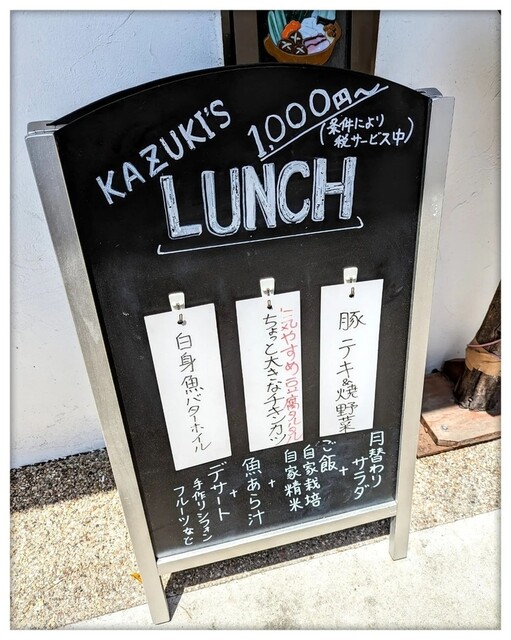 KAZUKI'S
1,000円〜
(条件により
税サービス中)
LUNCH
豚テキ&焼野菜
気やすめ豆腐タルタル
ちょっと大きなチキンカツ
白身魚バターホイル
月替わり
サラダ
+
ご飯
自家栽培
自家精米
+
魚あら汁
+
デザート
手作りシフォン
フルーツなど